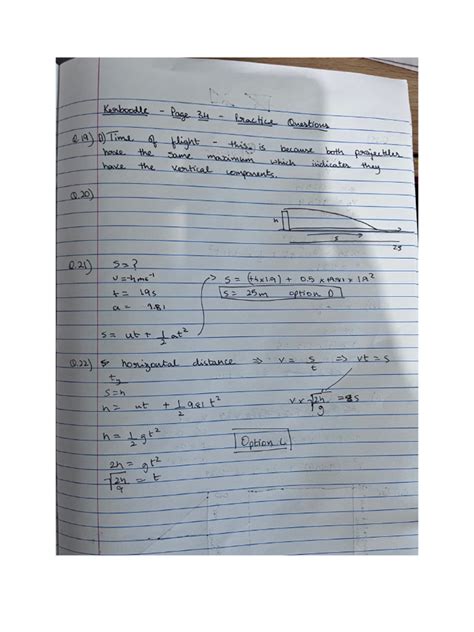 Kerboodle - Page 34 - Practice Questions
Q.19) D) Time of flight - this is because both projectiles
have the same maximum which indicates they
have the vertical components.
Q.20)
h
s
2s
Q.21) s = ?
u = 4ms⁻¹
t = 1.9s
a = 9.81
s = ut + 1/2 at²
s = 25m option D
Q.22) horizontal distance ⇒ v = s/t ⇒ vt = s
s = h
h = ut + 1/2 9.81 t²
v × √2h/g = s
h = 1/2 gt²
Option C
2h = gt²
√2h/g = t